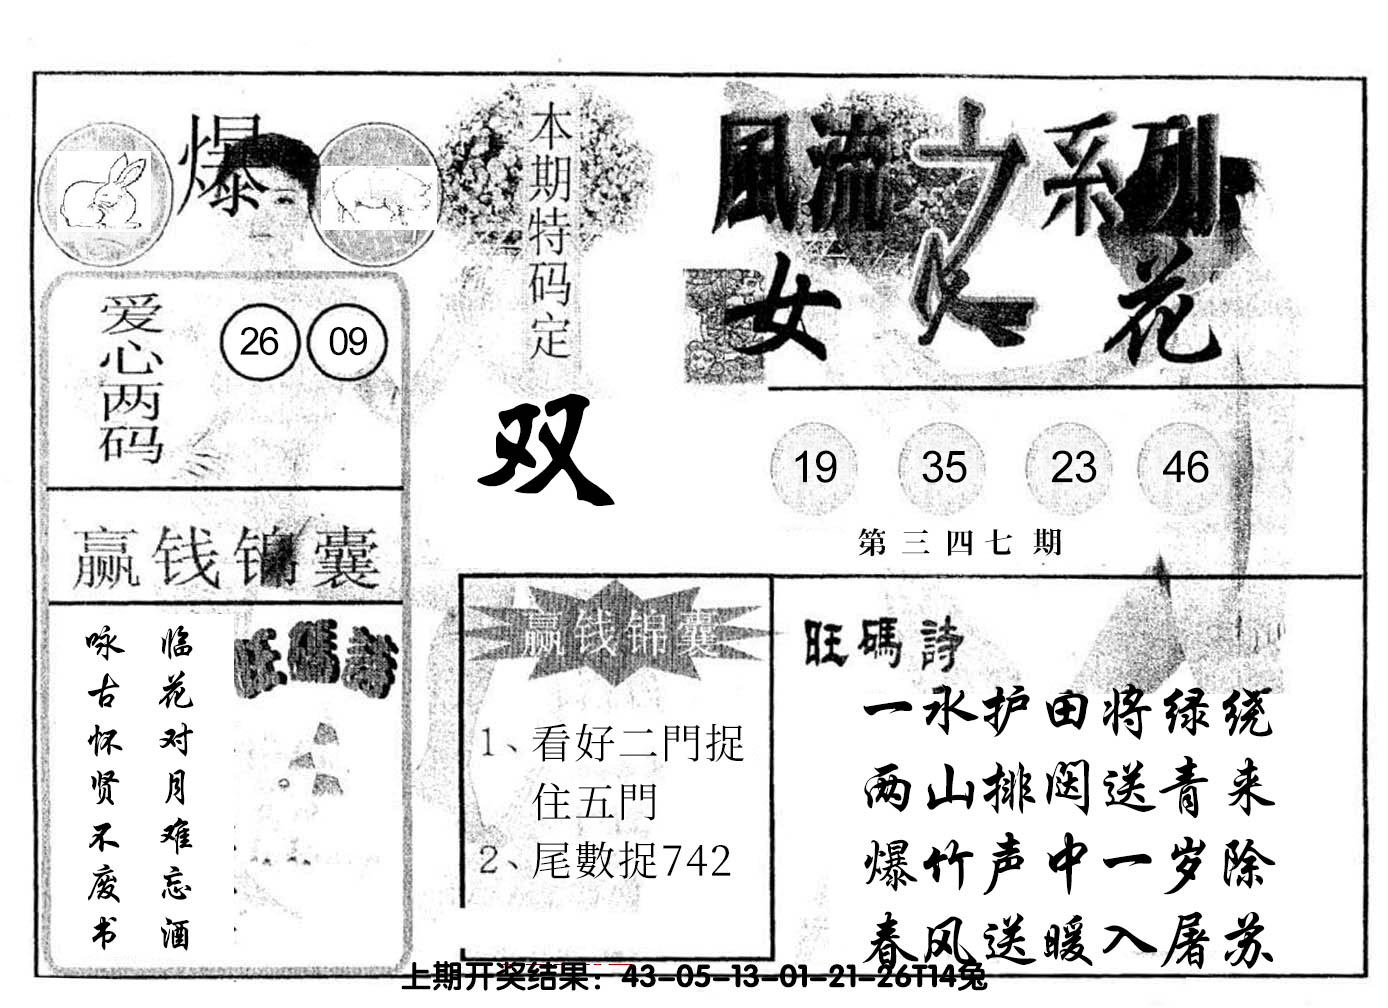 爆
本期特码定
双
風流之系列
女人花
爱心两码
26 09
19 35 23 46
第三四七期
赢钱锦囊
临花对月难忘酒
咏古怀贤不废书
旺碼詩
赢钱锦囊
1、看好二門捉
住五門
2、尾數捉742
旺碼詩
一水护田将绿绕
两山排闼送青来
爆竹声中一岁除
春风送暖入屠苏
上期开奖结果：43-05-13-01-21-26T14兔